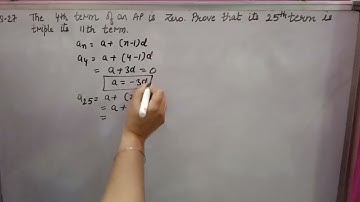 Q-27 The 4th term of an AP is zero. Prove that its 25th term is
triple its 11th term.
an = a + (n-1)d
a4 = a + (4-1)d
= a + 3d = 0
a = -3d
a25 = a + (2
= a +
=